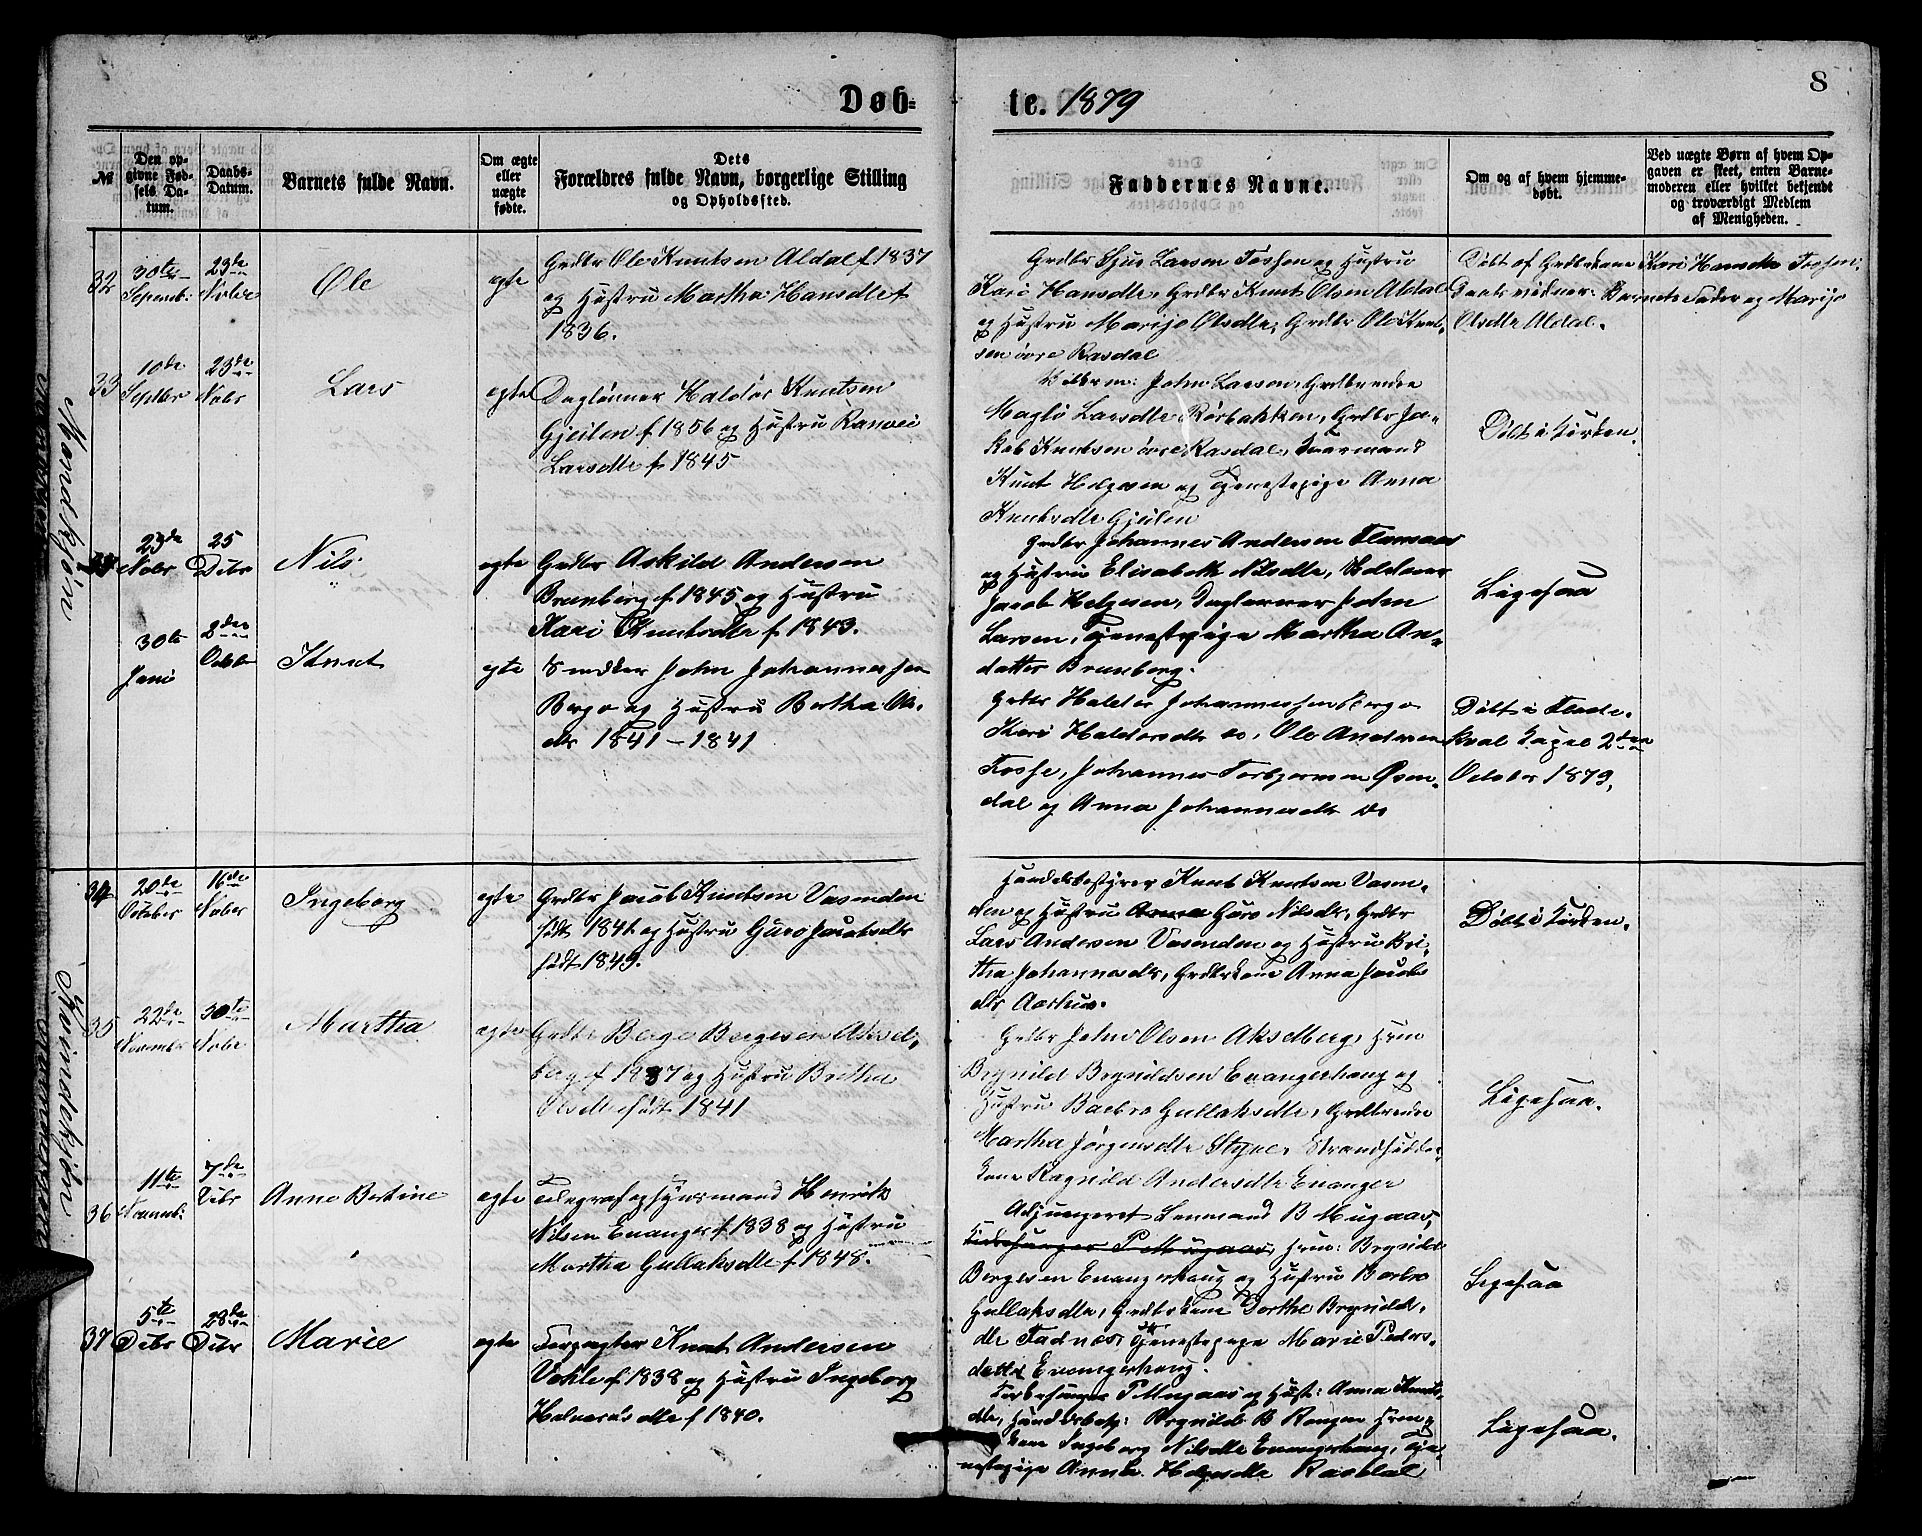 Døb=
te. 1879
8
№
Den op-
givne Fød-
sels Da-
tum.
Daabs-
Datum.
Barnets fulde Navn.
Om ægte
eller
uægte
fødte.
Dets
Forældres fulde Navn, borgerlige Stilling
og Opholdssted.
Faddernes Navne.
Om og af hvem hjemme-
døbt.
Ved uægte Børn af hvem Op-
gaven er skeet, enten Barne-
moderen eller hvilket bekjendt
og troværdigt Medlem
af Menigheden.
Mandkjøn
32
30te
Septemb:
23de
Nvbr
Ole
egte
Grdbr Ole Knutsen Aldal f 1837
og Hustru Martha Hansdtr f
1836.
Grdbr Sjur Larsen Fossen og Hustru
Kari Hansdtr, Grdbr Knut Olsen Aldal
og Hustru Marijo Olsdtr, Grdbr Ole Knut-
sen øvre Rasdal
Døbt af Kari Hansdtr Fossen.
Daabsvidner: Barnets Fader og Marijo
Olsdtr Aldal.
33
10de
Septbr
23de
Nvbr
Lars
egte
Daglønner Haldor Knutsen
Gjeilen f 1856 og Hustru Ranvei
Larsdtr f 1845
John Larsen,
Magli Larsdtr Rørbakken, Grdbr Ja-
kob Knutsen øvre Rasdal,
Knut Helgesen og Tjenestepige Anna
Knutsdtr Gjeilen
Døbt i Kirken.
23de
Nvbr
25
Dcbr
Nils
egte
Grdbr Askild Andersen
Brunborg f. 1845 og Hustru
Kari Knutsdtr f 1843.
Grdbr Johannes Andersen
og Hustru Elisabeth Nilsdtr,
Jacob Helgesen, Daglønner John
Larsen, Tjenestepige Martha An-
datter Brunborg.
Ligesaa
30te
Juni
2den
Octbr
Knut
egte
John Johannessen
Berge og Hustru Bertha Ols-
dtr 1841 – 1841
Grdbr Haldor Johannessen Berge
Kari Haldorsdtr do, Ole Andersen
Fosse, Johannes Torbjørnsen Øvsn-
dal og Anna Johannesdtr do
Døbt i
Kapel 2den
October 1879.
Kvindekjøn
34
20de
October
16de
Nvber
Ingeborg
egte
Grdbr Jacob Knutsen Vasenden
født 1841 og Hustru Guro Jacobsdtr
født 1849.
Handelsbestyrer Knut Knutsen Vasen-
den og Hustru Guro Nilsdtr, Grdbr
Lars Andersen Vasenden og Hustru Bri-
tha Johannesdtr, Grdbrkone Anna Jacobs
dtr Aarhus.
Døbt i Kirken.
35
22de
Novembr
30te
Nvbr
Martha
egte
Grdbr Berge Bergesen Aksel-
berg f 1837 og Hustru Britha
Olsdtr født 1841
Grdbr John Olsen Akselberg, Hrm
Brynild Brynildsen Evangerhaug og
Hustru Barbro Gullaksdtr,
Martha Jørgensdtr Styve, Strandsidder-
kone Ragnild Andersdtr Evanger
Ligesaa.
36
11te
Novemb:
7de
Dcbr
Anne Bertine
egte
Telegrafopsynsmand Henrik
Nilsen Evanger f 1838 og Hustru
Martha Gullaksdtr f 1848.
Adjungeret Lensmand B Mugaas,
Kirkesanger P Mugaas, Hrm: Brynild
Bergesen Evangerhaug og Hustru Barbro
Gullaksdtr, Grdbrkone Dorthe Brynilds-
dtr Fadnæs, Tjenestepige Marie Peders-
datter Evangerhaug.
Ligesaa
37
5te
Dcbr
28de
Dcbr
Marie
egte
Forpagter Knut Andersen
Vohle f 1838 og Hustru Ingeborg
Halvorsdtr f 1840.
Kirkesanger P Mugaas og Hust: Anna Knuts-
dtr, Handelsbest: Brynild B Rongen Hrm
kone Ingeborg Nilsdtr Evangerhaug, Tje-
nestepige Anna Helgesdtr Rasdal
Ligesaa.